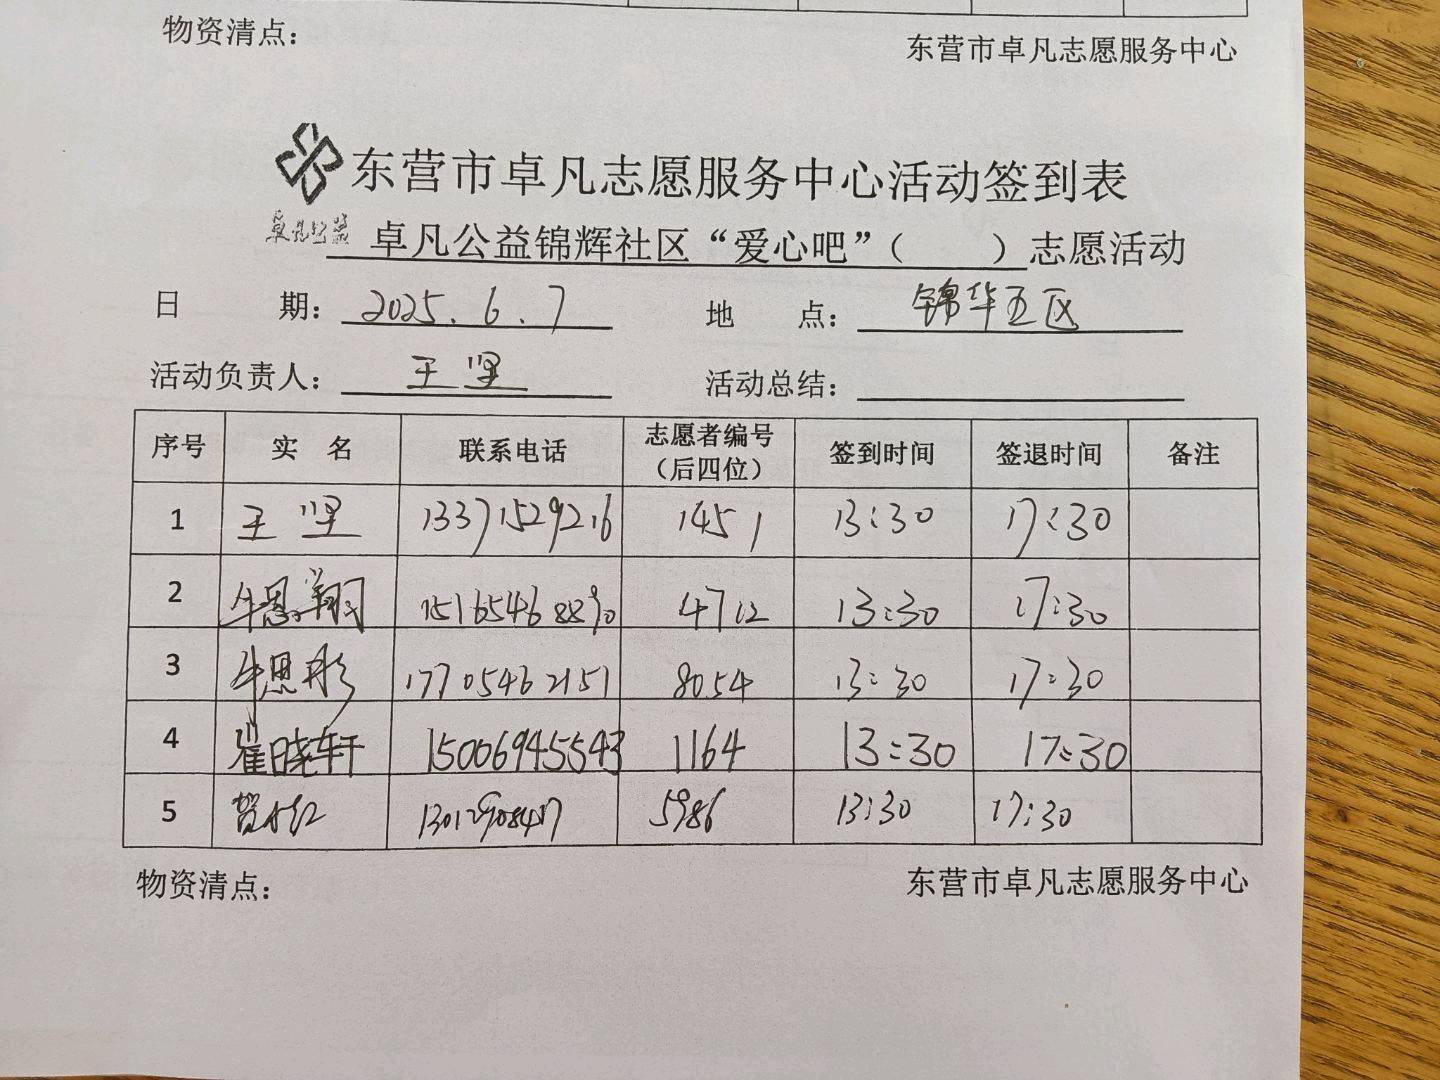 物资清点：
东营市卓凡志愿服务中心
东营市卓凡志愿服务中心活动签到表
卓凡公益
卓凡公益锦辉社区“爱心吧”（ ）志愿活动
日 期：2025.6.7 地 点：锦华五区
活动负责人：王坚 活动总结：
序号 实 名 联系电话 志愿者编号（后四位） 签到时间 签退时间 备注
1 王坚 13371529216 1451 13:30 17:30
2 牛恩翔 15165468890 4712 13:30 17:30
3 牛恩彤 17705462151 8054 13:30 17:30
4 崔晓轩 15006945543 1164 13:30 17:30
5 13012908417 5986 13:30 17:30
物资清点：
东营市卓凡志愿服务中心